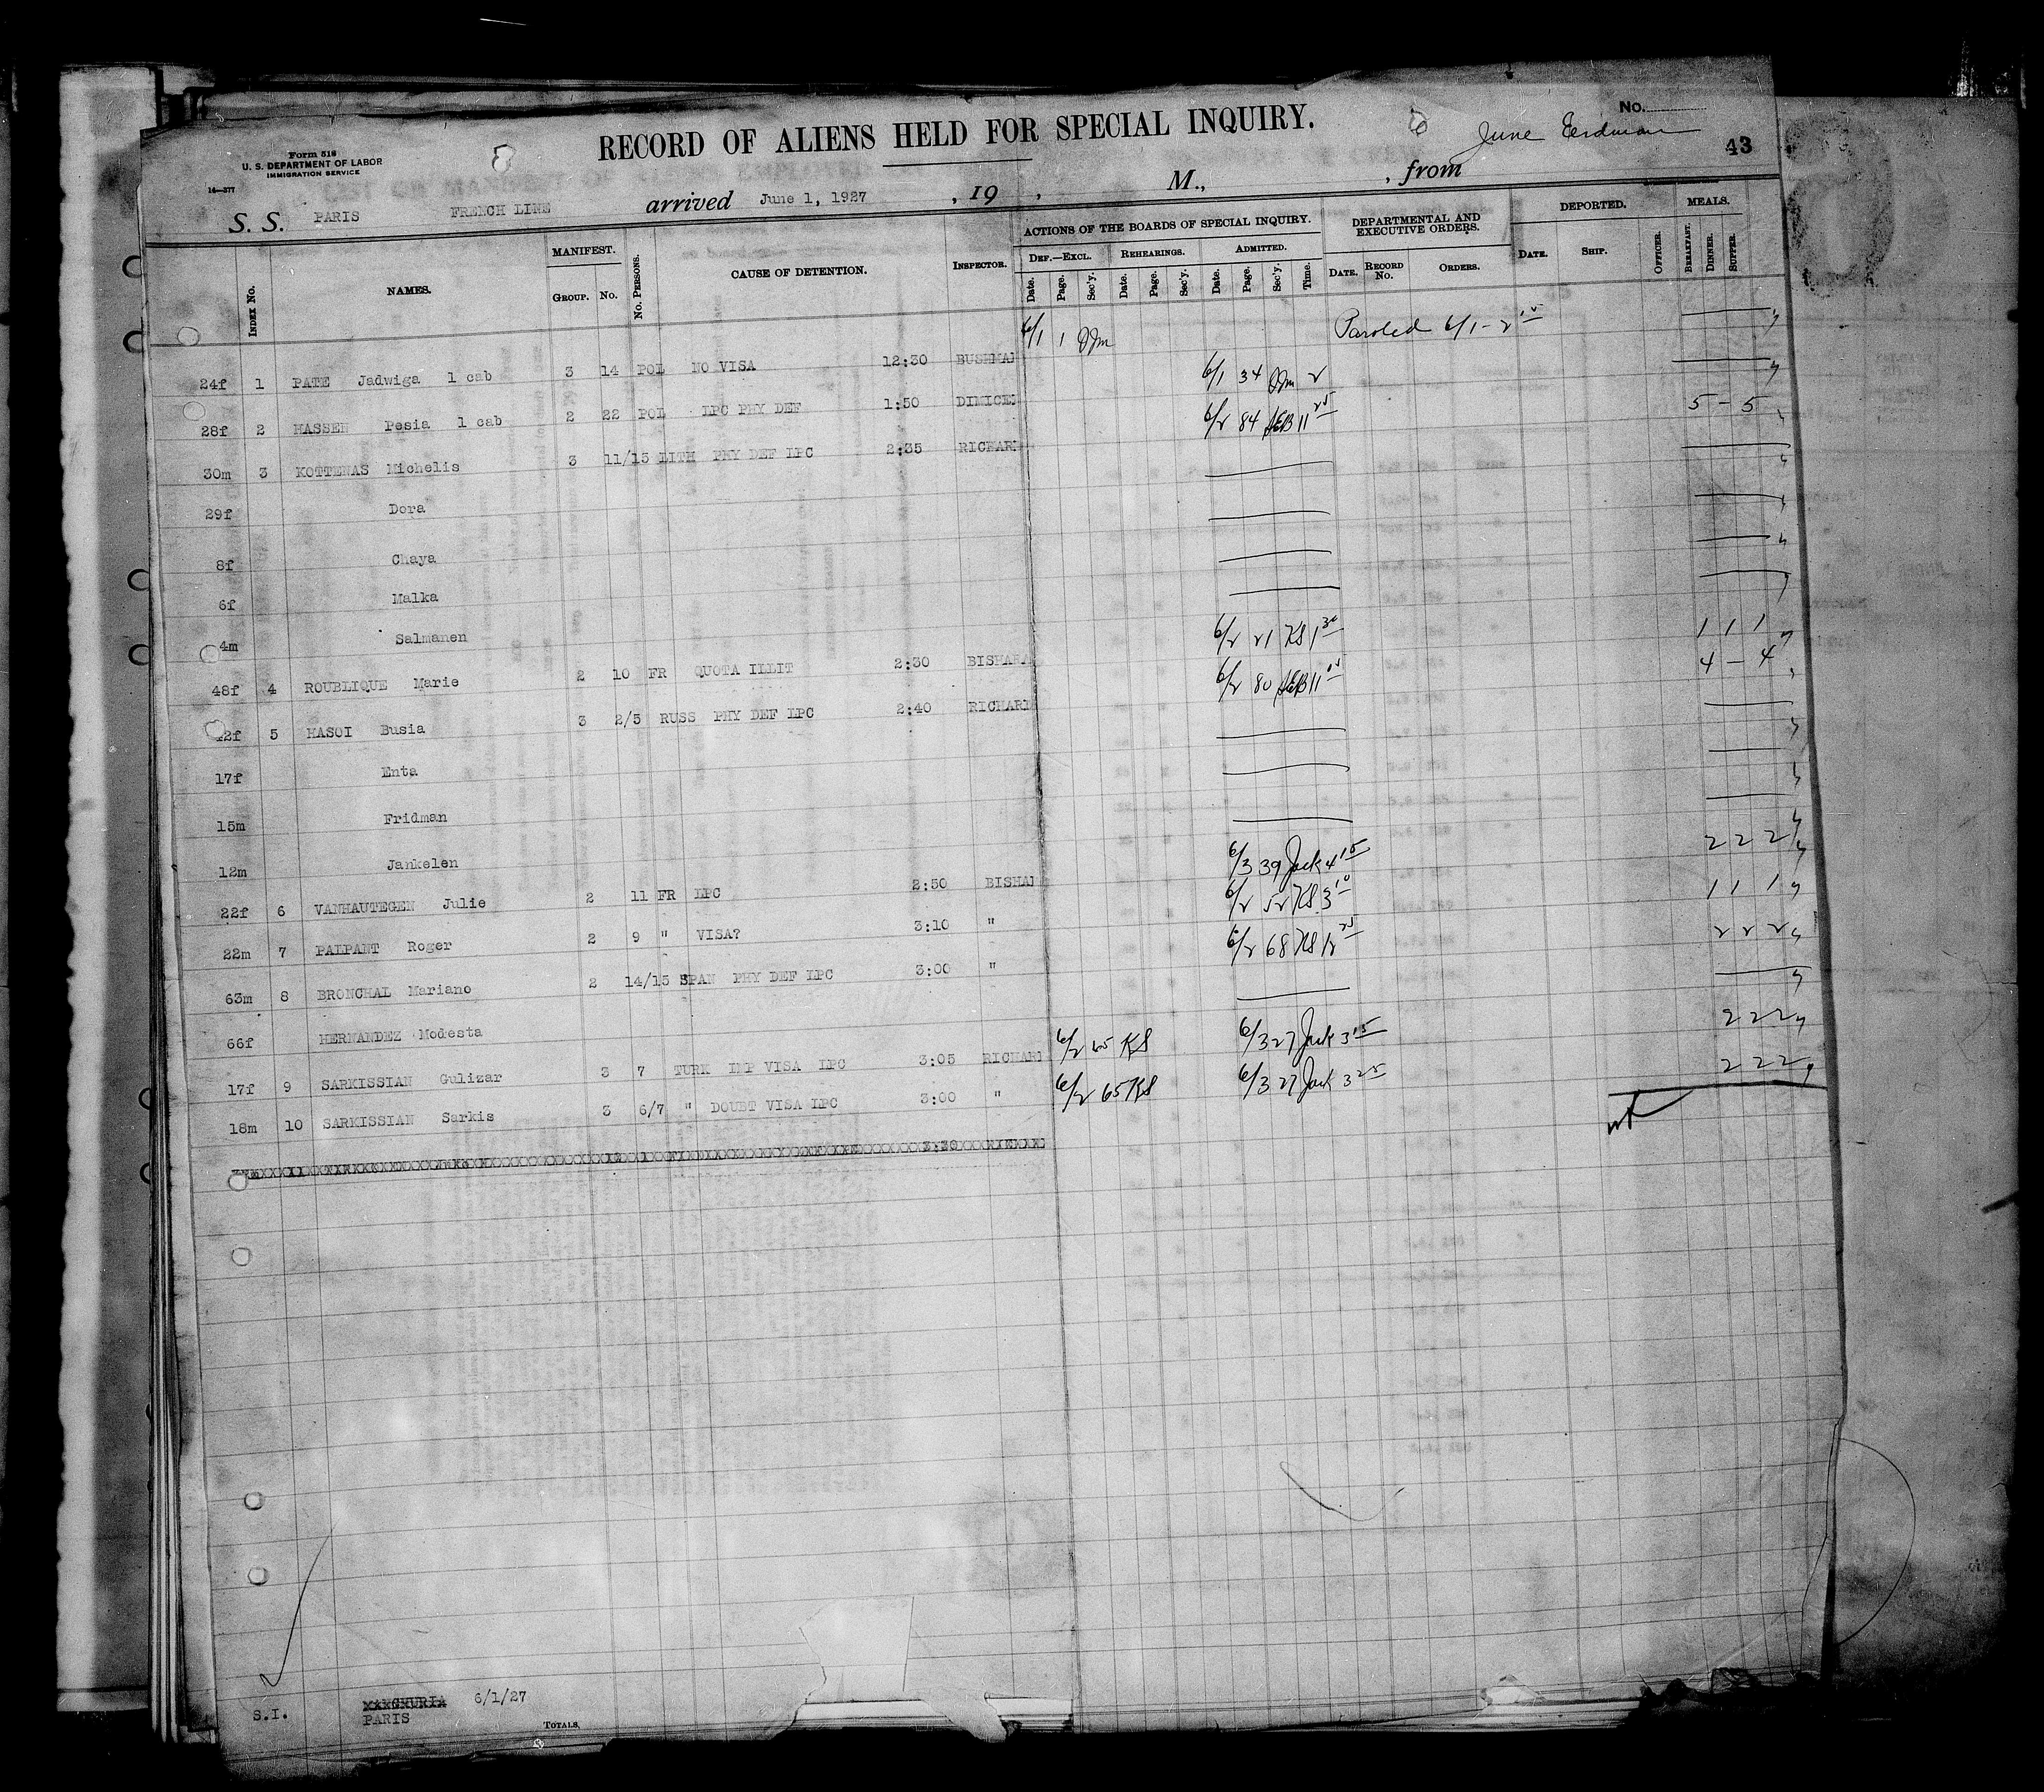 RECORD OF ALIENS HELD FOR SPECIAL INQUIRY.
No.
Form 516
U. S. DEPARTMENT OF LABOR
IMMIGRATION SERVICE
14—377
8
6
June Eerdman
43
S. S. PARIS FRENCH LINE arrived June 1, 1927, 19 , M., , from
INDEX No. NAMES. MANIFEST. GROUP. No. No. PERSONS. CAUSE OF DETENTION. INSPECTOR. ACTIONS OF THE BOARDS OF SPECIAL INQUIRY. DEPARTMENTAL AND EXECUTIVE ORDERS. DEPORTED. MEALS.
DEF.—EXCL. REHEARINGS. ADMITTED.
Date. Page. Sec'y. Date. Page. Sec'y. Date. Page. Sec'y. Time. DATE. RECORD No. ORDERS. DATE. SHIP. OFFICER. BREAKFAST. DINNER. SUPPER.
24f 1 PATE Jadwiga 1 cab 3 14 POL NO VISA 12:30 BUSHMAN 6/1 1 Paroled 6/1 -
28f 2 MASSEH Pesia 1 cab 2 22 POL LPC PHY DEF 1:50 DIMICES 6/1 34
30m 3 KOTTENAS Michelis 3 11/15 LITH PHY DEF LPC 2:35 RICHARD 6/2 84 AEB 11 25 5 - 5
29f Dora
8f Chaya
6f Malka
4m Salmanen
48f 4 ROUBLIQUE Marie 2 10 FR QUOTA ILLIT 2:30 BISHARA 6/2 21 KS 1 30 1 1 1
42f 5 MASOI Busia 3 2/5 RUSS PHY DEF LPC 2:40 RICHARD 6/2 80 AEB 11 4 - 4
17f Enta
15m Fridman
12m Jankelen
22f 6 VANHAUTEGEN Julie 2 11 FR LPC 2:50 BISHAR 6/3 39 Jack 4 15 2 2 2
22m 7 PALPANT Roger 2 9 " VISA? 3:10 " 6/2 52 KS 3 10 1 1 1
63m 8 BRONCHAL Mariano 2 14/15 SPAN PHY DEF LPC 3:00 " 6/2 68 KS 2 2 2
66f HERNANDEZ Modesta
17f 9 SARKISSIAN Gulizar 3 7 TURK IMP VISA LPC 3:05 RICHARD 6/2 65 KS 6/3 27 Jack 3 15 2 2 2
18m 10 SARKISSIAN Sarkis 3 6/7 " DOUBT VISA LPC 3:00 " 6/2 65 KS 6/3 27 Jack 3 25 2 2 2
3:30
S.I. MANCHURIA 6/1/27
PARIS
TOTALS,